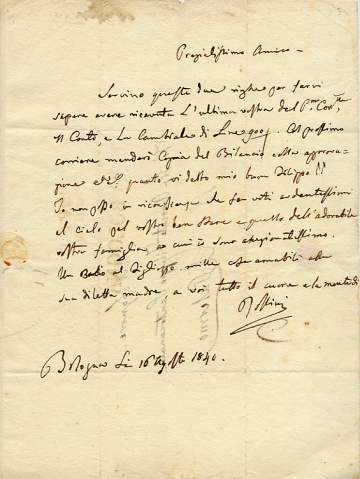 Pregiatissimo Amico
Servino queste due righe per farvi
sapere avere ricevuta l'ultima vostra del
il Conto, e la Cambiale di Al prossimo
corriere manderò Copia del Bilancio colla approva-
zione quanto vi detto mio buon Filippo !!
Io non posso in che far voti ardentissimi
al cielo pel vostro ben essere e quello dell'adorabile
vostra famiglia a cui io sono affezionatissimo.
Un Bacio al Figlio, mille cose amabili alla
sua diletta madre, a voi tutto il cuore e la mente di
Rossini
Bologna li 16 Agosto 1840.